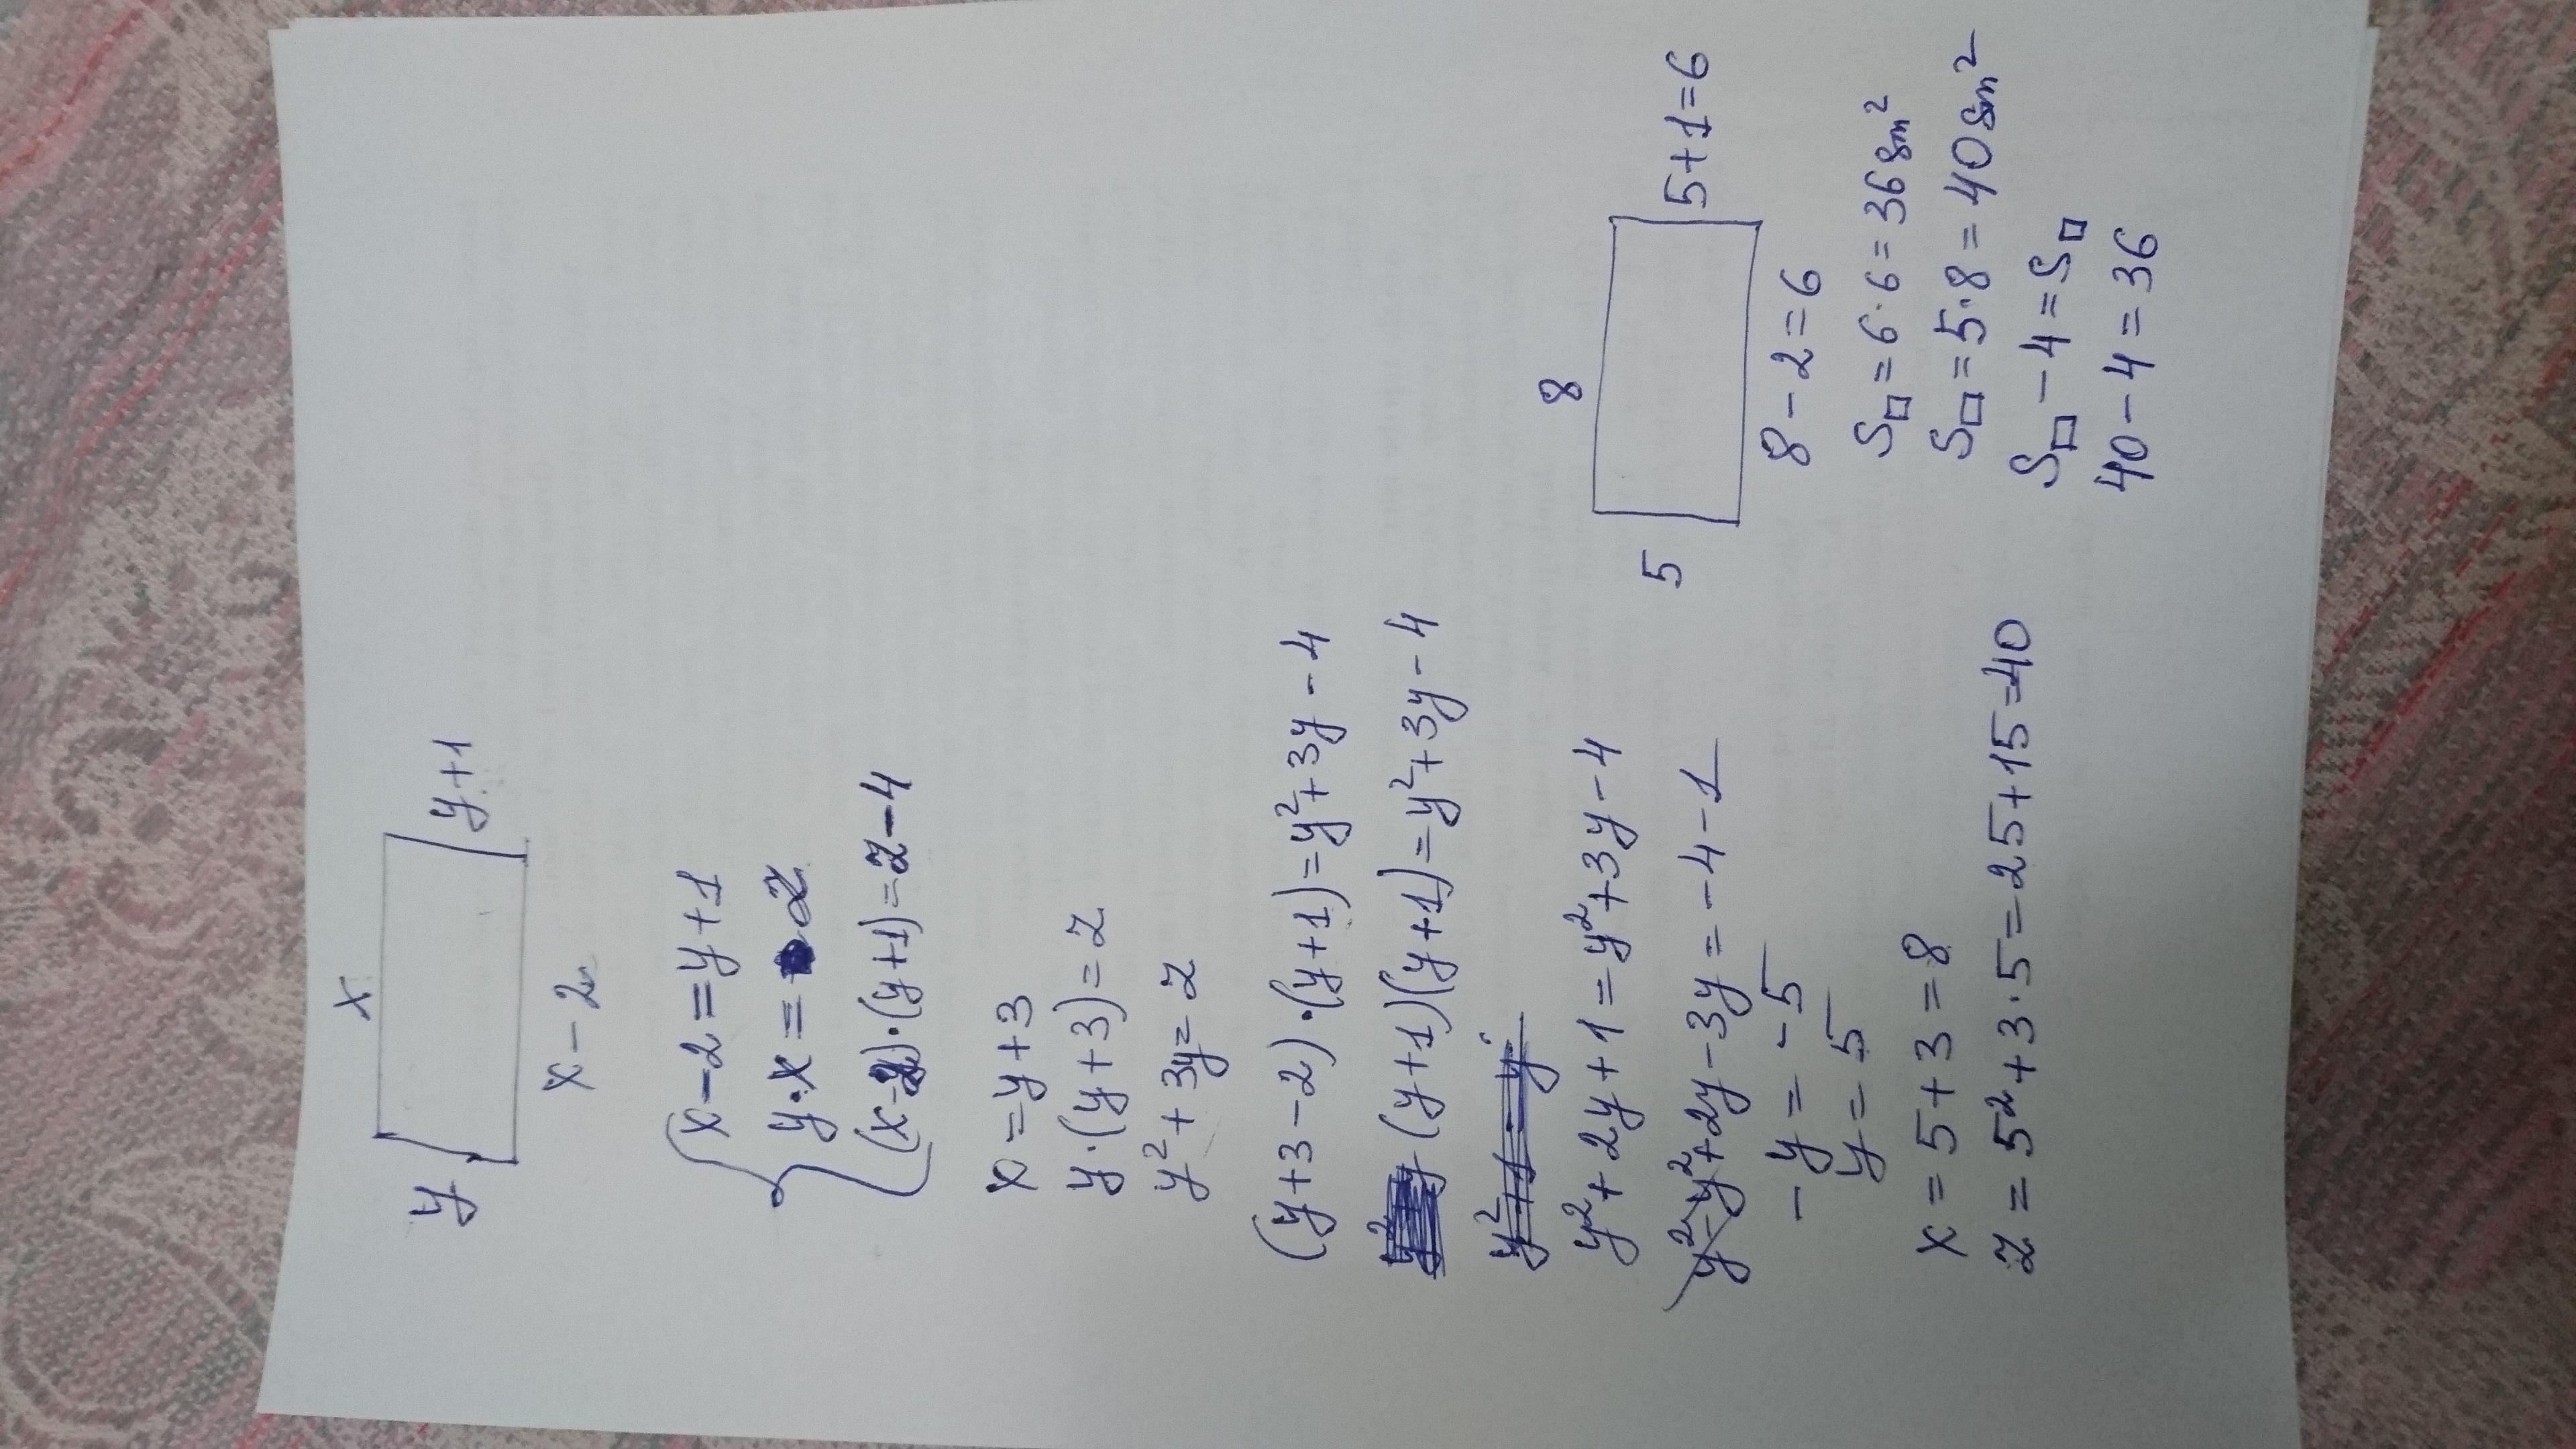 x
y
y+1
x-2
x-2=y+1
y·x=z
(x-2)·(y+1)=z-4
x=y+3
y·(y+3)=z
y²+3y=z
(y+3-2)·(y+1)=y²+3y-4
(y+1)(y+1)=y²+3y-4
y²+2y+1=y²+3y-4
y²-y²+2y-3y=-4-1
-y=-5
y=5
x=5+3=8
z=5²+3·5=25+15=40
8
5
5+1=6
8-2=6
S□=6·6=36 sm²
S▭=5·8=40 sm²
S▭-4=S□
40-4=36